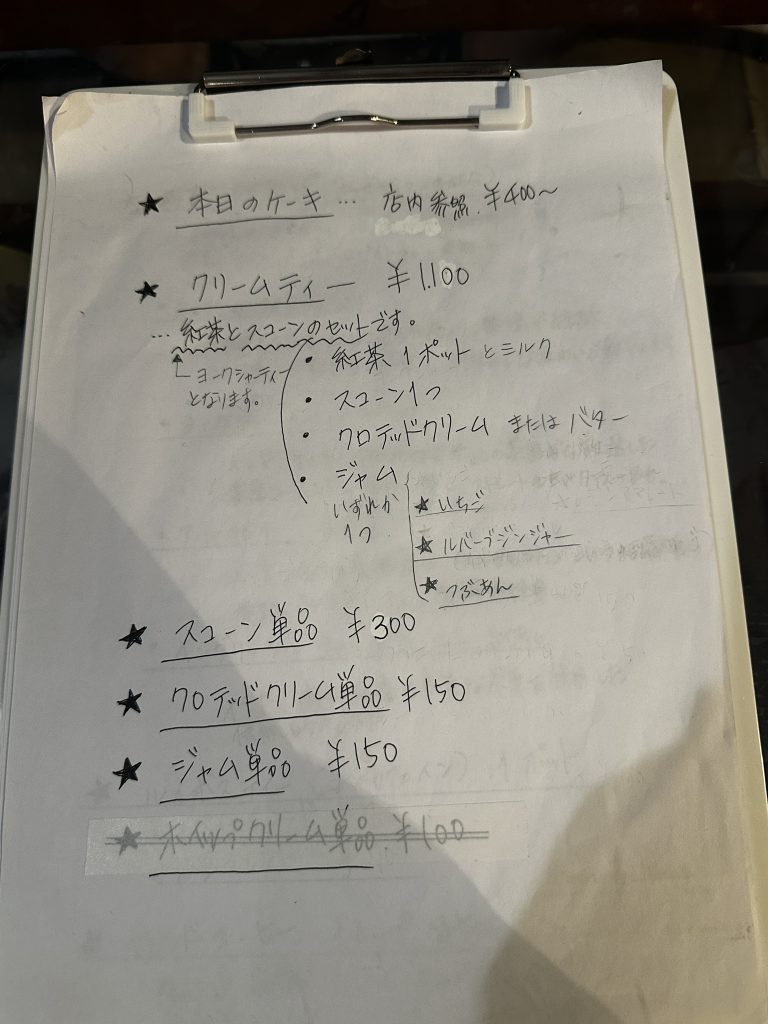 ★ 本日のケーキ … 店内参照 ¥400〜
★ クリームティー ¥1.100
… 紅茶とスコーンのセットです。
ヨークシャーティー
となります。
・ 紅茶 1ポットとミルク
・ スコーン1つ
・ クロテッドクリーム または バター
・ ジャム
いずれか
1つ
★ いちご
★ ルバーブジンジャー
★ つぶあん
★ スコーン単品 ¥300
★ クロテッドクリーム単品 ¥150
★ ジャム単品 ¥150
★ ホイップクリーム単品 ¥100